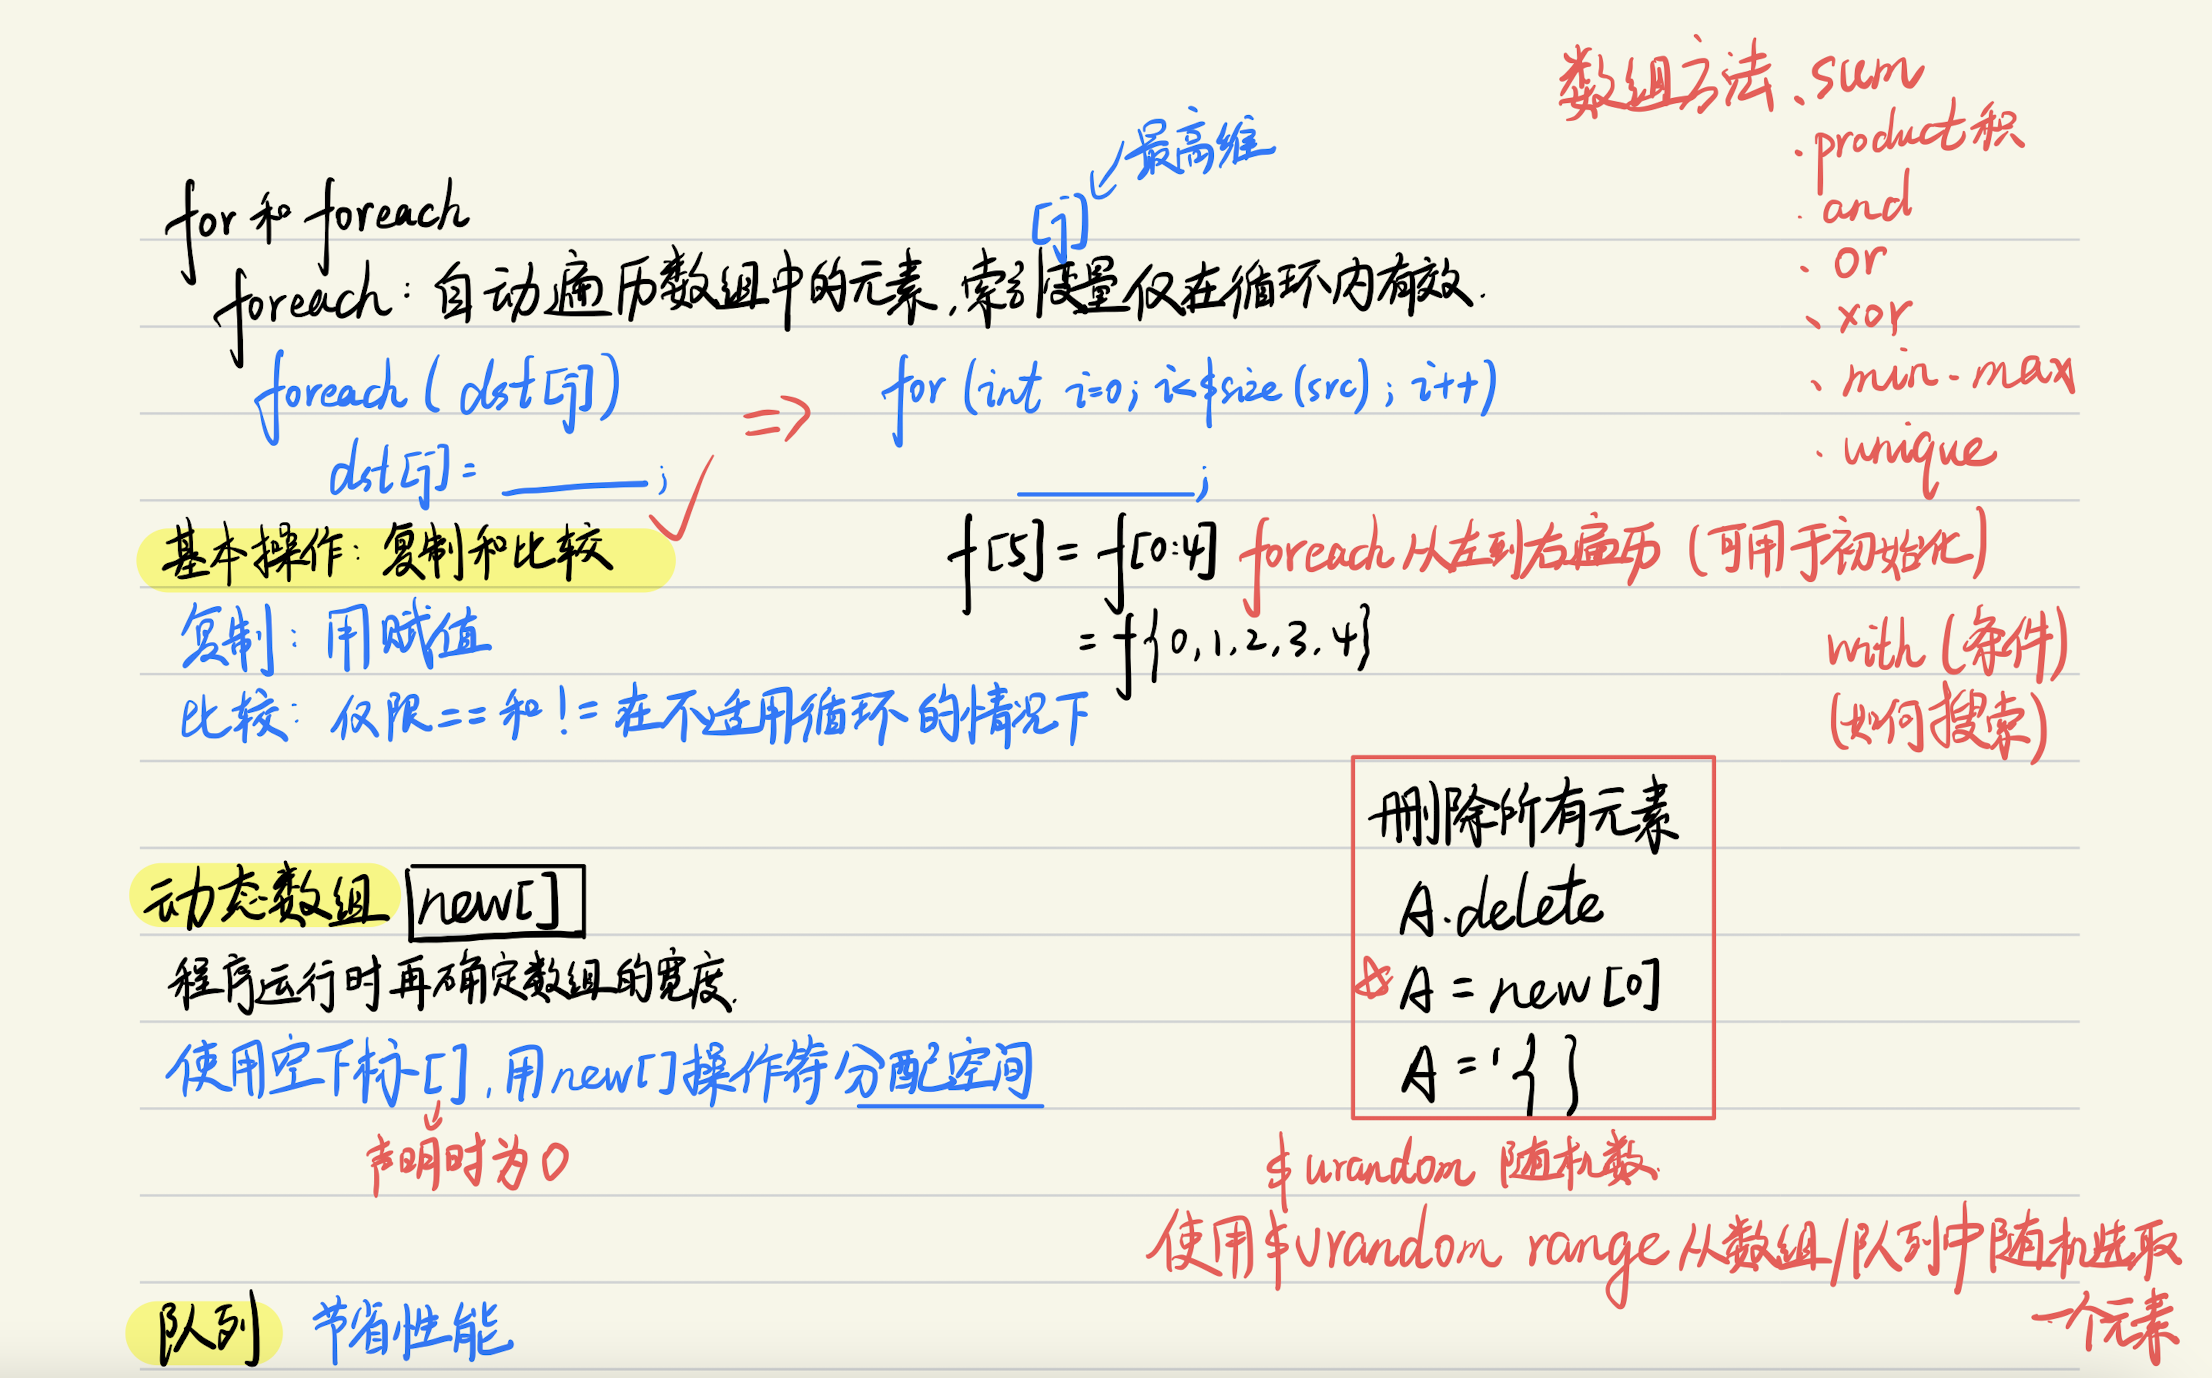 数组方法 .sum
.product 积
.and
.or
.xor
.min .max
.unique
最高维
[j]
for 和 foreach
foreach: 自动遍历数组中的元素,索引变量仅在循环内有效.
foreach ( dst[j])
dst[j] = ______ ;
=>
for (int i=0; i<$size (src) ; i++)
______ ;
基本操作: 复制和比较
复制: 用赋值
比较: 仅限 == 和 != 在不适用循环的情况下
f[5] = f[0:4] foreach 从左到右遍历 (可用于初始化)
= f{0,1,2,3,4}
with (条件)
(如何搜索)
删除所有元素
A.delete
☆ A = new [0]
A = '{ }
动态数组 new[]
程序运行时再确定数组的宽度.
使用空下标[],用new[]操作符分配空间
声明时为0
$urandom 随机数
使用$urandom range从数组/队列中随机选取
一个元素
队列 节省性能